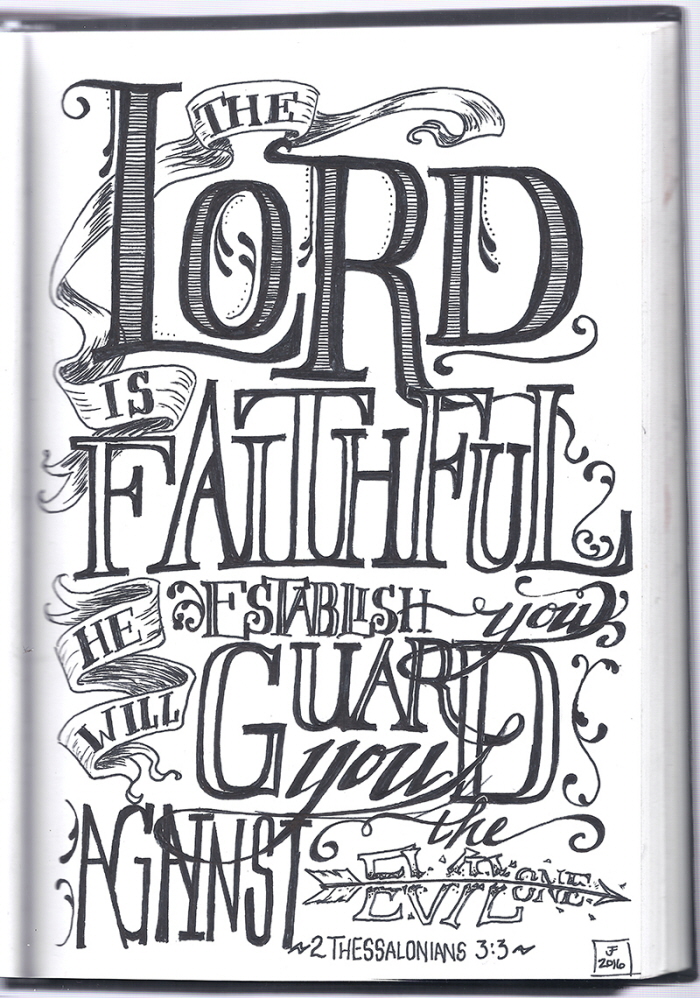 THE
LORD
IS
FAITHFUL
HE WILL
ESTABLISH you
GUARD
you
AGAINST
the
EVIL ONE
~2 THESSALONIANS 3:3~
JF
2016